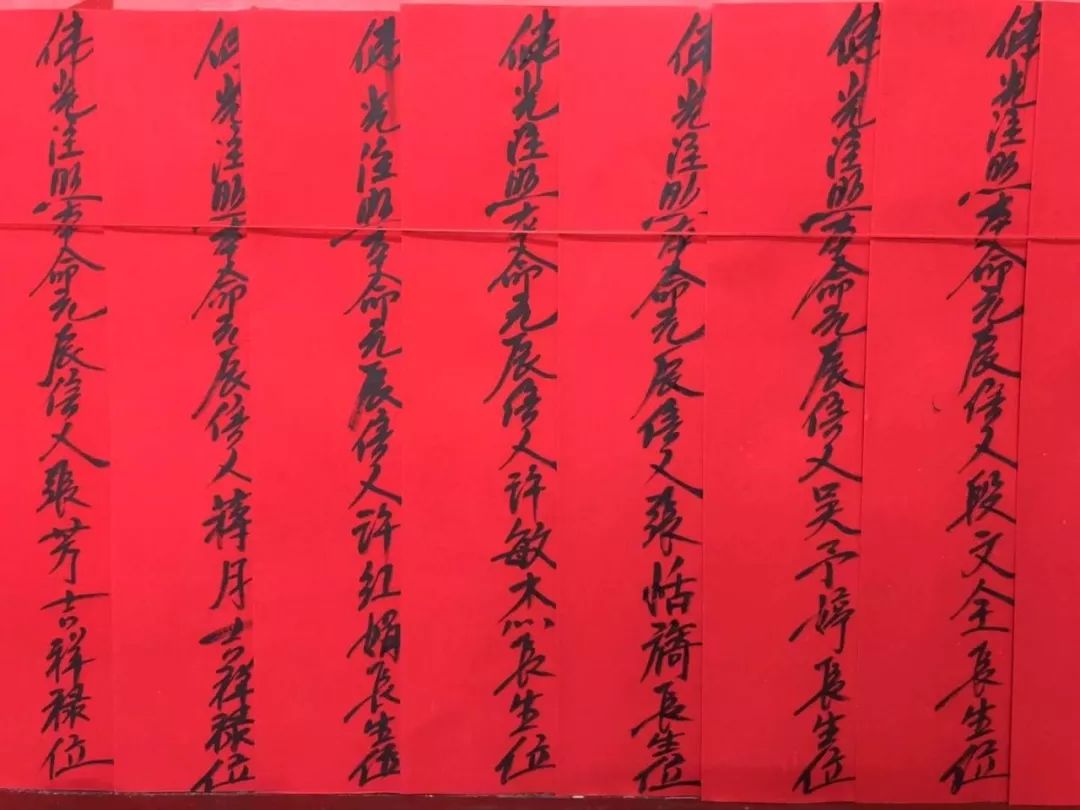 佛光注照本命元辰信人段文全長生位
佛光注照本命元辰信人吴予婷長生位
佛光注照本命元辰信人張恬旖長生位
佛光注照本命元辰信人许敏杰長生位
佛光注照本命元辰信人许红娟長生位
佛光注照本命元辰信人蒋月吉祥禄位
佛光注照本命元辰信人張芳吉祥禄位